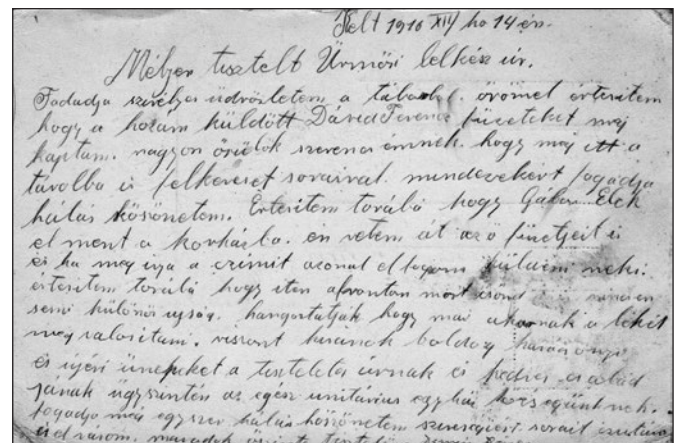 Kelt 1916 XII/ho 14 én.
Mélyen tisztelt Ürmösi lelkész úr.
Fogadja szivélyes üdvözletem a távolból. örömel értesitem
hogy a hozám küldött Dávid Ferenc füzeteket meg
kaptam. nagyon örülök szerencsémnek. hogy még itt a
távolba is felkereset soraival. mindezekért fogadja
hálás köszönetem. Értesitem továbá hogy Gálfi Elek
el ment a korházba. én vetem át az ő füzetjeit is
és ha meg irja a czimit azonal el fogom küldeni neki.
értesitem továbá hogy iten afronton most csönd nincsen
semi különös ujság. hangoztatják hogy mai akarnak a békét
meg valositani. viszont kivánok boldog karácsonyi
és ujévi ünepeket a tiszteletes úrnak és kedves család
jának úgyszintén az egész unitárius egyház községünknek.
fogadja még egyszer hálás köszönetem szivességiért. sorait ezutan
is el várom. maradok